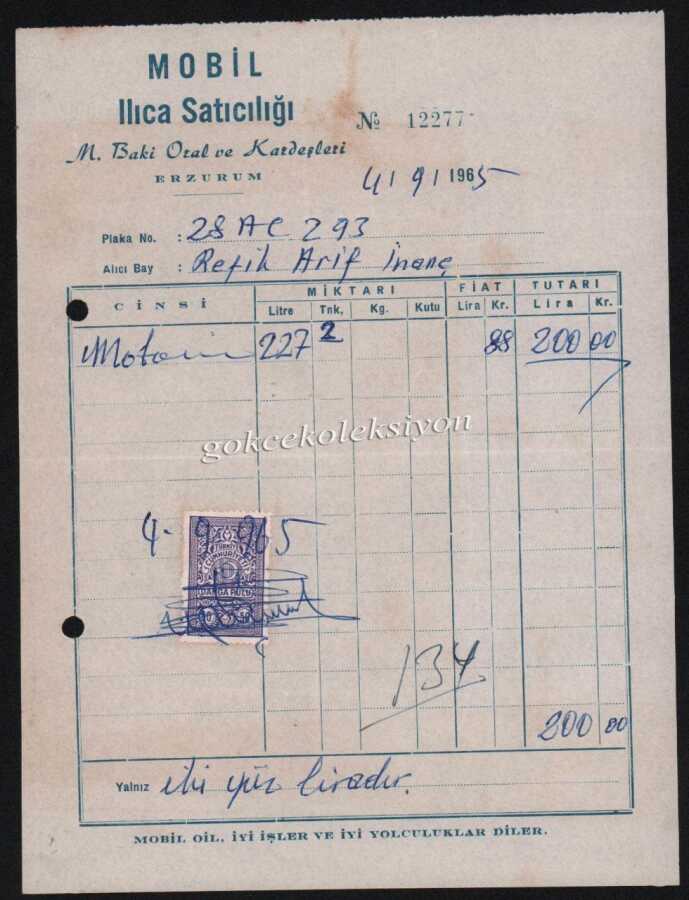 MOBİL
Ilıca Satıcılığı
№ 12277
M. Baki Oral ve Kardeşleri
ERZURUM
4/9/1965
Plaka No. : 28 AC 293
Alıcı Bay : Refik Arif İnanç
CİNSİ MİKTARI FİAT TUTARI
Litre Tnk, Kg. Kutu Lira Kr. Lira Kr.
Motorin 227 2 88 200 00
gokcekoleksiyon
4-9-965
TÜRKİYE
CUMHURİYETİ
DAMGA PULU
134
200 00
Yalnız iki yüz liradır.
MOBİL OIL, İYİ İŞLER VE İYİ YOLCULUKLAR DİLER.